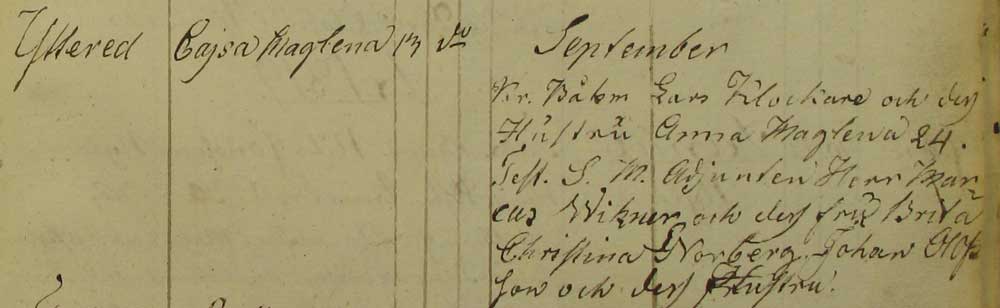 September
Yttered Cajsa Maglena 13 do
Kr. Båtsm Lars Klockare och dess
Hustru Anna Maglena 24.
Test. S. M. Adjuncten Herr Mar-
cus Wikner och dess fru Brita
Christina Norberg. Johan Olofs
son och dess Hustru.